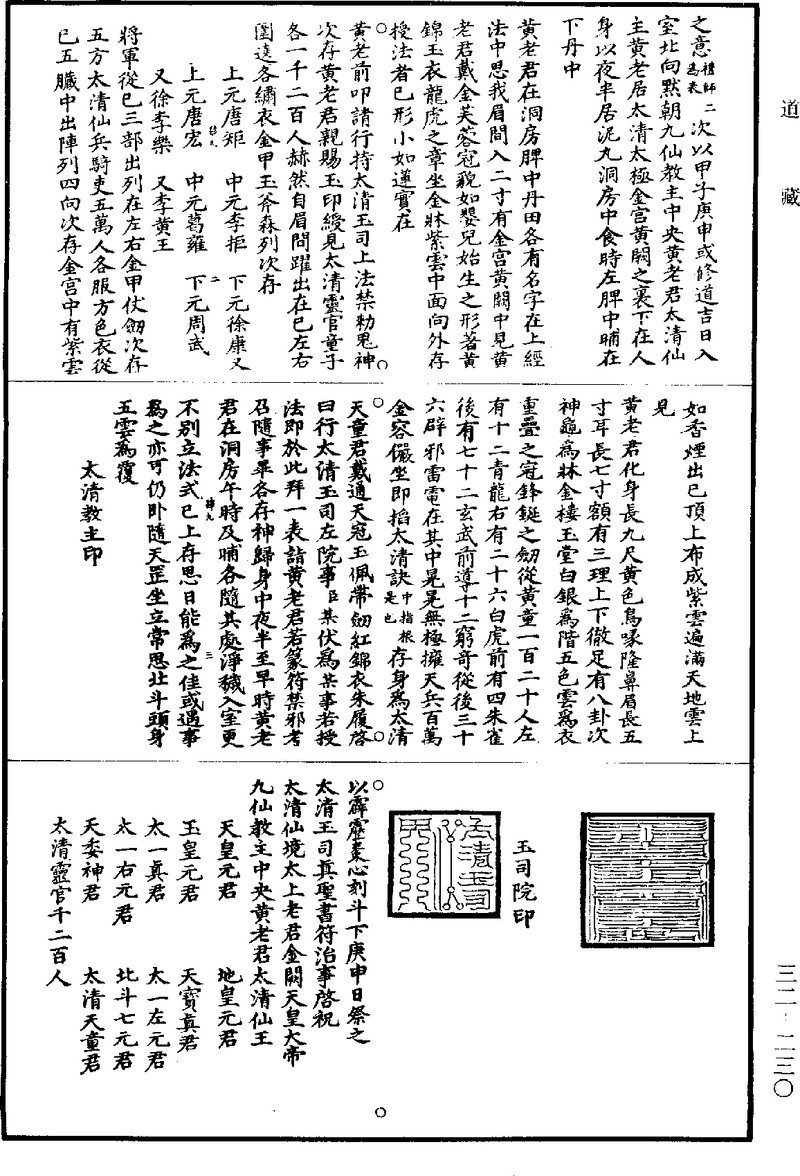 道藏
之意禮師為表二次以甲子庚申或修道吉日入
室北向默朝九仙教主中央黃老君太清仙
主黃老居太清太極金宮黃闕之裏下在人
身以夜半居泥丸洞房中食時左脾中晡在
下丹中
黃老君在洞房脾中丹田各有名字在上經
法中思我眉間入二寸有金宮黃闕中見黃
老君戴金芙蓉冠貌如嬰兒始生之形著黃
錦玉衣龍虎之章坐金牀紫雲中面向外存
授法者已形小如蓮實在
黃老前叩請行持太清玉司上法禁勑鬼神
次存黃老君親賜玉印綬見太清靈官童子
各一千二百人赫然自眉間躍出在已左右
圍遶各繡衣金甲玉斧森列次存
上元唐矩　中元李拒　下元徐康又
上元唐宏　中元葛雍　下元周武
又徐李樂　又李黃王
將軍從已三部出列在左右金甲仗劒次存
五方太清仙兵騎吏五萬人各服方色衣從
已五臟中出陣列四向次存金宮中有紫雲
如香煙出已頂上布成紫雲遍滿天地雲上
見
黃老君化身長九尺黃色鳥喙隆鼻眉長五
寸耳長七寸額有三理上下徹足有八卦次
神龜為牀金樓玉堂白銀為階五色雲為衣
重疊之冠鋒鋋之劒從黃童一百二十人左
有十二青龍右有二十六白虎前有四朱雀
後有七十二玄武前導十二窮奇從後三十
六辟邪雷電在其中晃晃無極擁天兵百萬
金容儼坐即掐太清訣中指根是也存身為太清
天童君戴通天冠玉佩帶劒紅錦衣朱履啓
曰行太清玉司左院事臣某伏為某事若授
法即於此拜一表詣黃老君若篆符禁邪考
召隨事畢各存神歸身中夜半至早時黃老
君在洞房午時及晡各隨其處淨穢入室更
不別立法式已上存思日能為之佳或遇事
為之亦可仍卧隨天罡坐立常思北斗頭身
五雲為覆
太清教主印
玉司院印
以霹靂棗心刻斗下庚申日祭之
太清玉司真聖書符治事啓祝
太清仙境太上老君金闕天皇大帝
九仙教主中央黃老君太清仙王
天皇元君　地皇元君
玉皇元君　天寳真君
太一真君　太一左元君
太一右元君　北斗七元君
天委神君　太清天童君
太清靈官千二百人
三二-二三〇